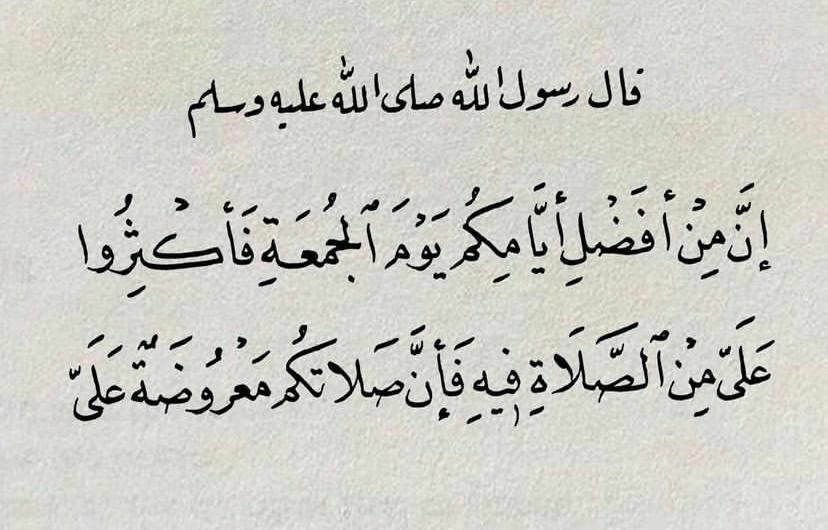 قال رسول الله صلى الله عليه وسلم
إنَّ مِنْ أفَضْلِ أيَّامِكُم يَوْمَ ٱلجُمعَةِ فَأكْثِرُوا
عَلَىَّ مِنْ ٱلصَّلَاةِ فِيهِ فَأنَّ صَلاتكُم مَعْرُوضَةٌ عَلَىَّ